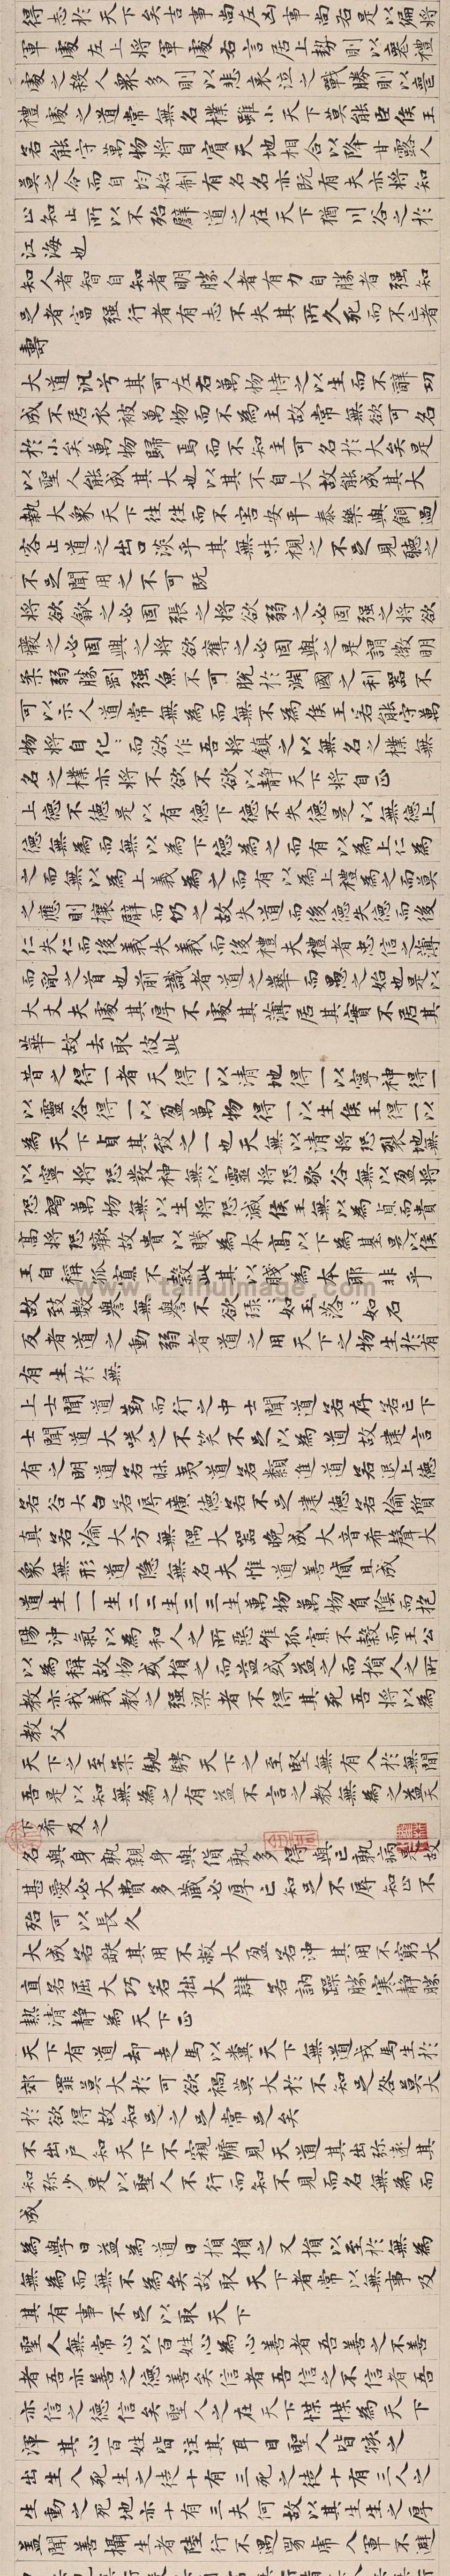 得志於天下矣吉事尚左凶事尚右是以偏將
軍處左上將軍處右言居上勢則以喪禮
處之殺人衆多則以悲哀泣之戰勝則以喪
禮處之道常無名樸雖小天下莫能臣侯王
若能守萬物將自賓天地相合以降甘露人
莫之令而自均始制有名名亦既有夫亦將知
止知止所以不殆譬道之在天下猶川谷之於
江海也
知人者智自知者明勝人者有力自勝者强知
足者富强行者有志不失其所久死而不亡者
壽
大道汎兮其可左右萬物恃之以生而不辭功
成不居衣被萬物而不為主故常無欲可名
於小矣萬物歸焉而不知主可名於大矣是
以聖人能成其大也以其不自大故能成其大
執大象天下往往而不害安平泰樂與餌過
客止道之出口淡乎其無味視之不足見聽之
不足聞用之不可既
將欲歙之必固張之將欲弱之必固强之將欲
廢之必固興之將欲奪之必固與之是謂微明
柔弱勝剛强魚不可脫於淵國之利器不
可以示人道常無為而無不為侯王若能守萬
物將自化:而欲作吾將鎮之以無名之樸無
名之樸亦將不欲不欲以靜天下將自正
上德不德是以有德下德不失德是以無德上
德無為而無以為下德為之而有以為上仁為
之而無以為上義為之而有以為上禮為之而莫
之應則攘臂而仍之故失道而後德失德而後
仁失仁而後義失義而後禮夫禮者忠信之薄
而亂之首也前識者道之華而愚之始也是以
大丈夫處其厚不處其薄居其實不居其
華故去取彼此
昔之得一者天得一以清地得一以寧神得一
以靈谷得一以盈萬物得一以生侯王得一以
為天下貞其致之一也天無以清將恐裂地無
以寧將恐發神無以靈將恐歇谷無以盈將
恐竭萬物無以生將恐滅侯王無以為貞而貴
高將恐蹶故貴以賤為本高以下為基是以侯
王自稱孤寡不穀此其以賤為本耶非乎
故致數譽無譽不欲琭:如玉落:如石
反者道之動弱者道之用天下之物生於有
有生於無
上士聞道勤而行之中士聞道若存若亡下
士聞道大咲之不笑不足以為道故建言
有之明道若昧夷道若纇進道若退上德
若谷大白若辱廣德若不足建德若偷質
真若渝大方無隅大器晚成大音希聲大
象無形道隱無名夫惟道善貸且成
道生一一生二二生三三生萬物萬物負陰而抱
陽沖氣以為和人之所惡唯孤寡不穀而王公
以為稱故物或損之而益或益之而損人之所
教亦我義教之强梁者不得其死吾將以為
教父
天下之至柔馳騁天下之至堅無有入於無間
吾是以知無為之有益不言之教無為之益天
下希及之
名與身孰親身與貨孰多得與亡孰病是故
甚愛必大費多藏必厚亡知足不辱知止不
殆可以長久
大成若缺其用不敝大盈若沖其用不窮大
直若屈大巧若拙大辯若訥躁勝寒靜勝
熱清靜為天下正
天下有道却走馬以糞天下無道戎馬生於
郊罪莫大於可欲禍莫大於不知足咎莫大
於欲得故知足之足常足矣
不出户知天下不窺牖見天道其出弥遠其
知弥少是以聖人不行而知不見而名無為而
成
為學日益為道日損損之又損以至於無為
無為而無不為矣故取天下者常以無事及
其有事不足以取天下
聖人無常心以百姓心為心善者吾善之不善
者吾亦善之德善矣信者吾信之不信者吾
亦信之德信矣聖人之在天下惵惵為天下
渾其心百姓皆注其耳目聖人皆孩之
出生入死生之徒十有三死之徒十有三人之
生動之死地亦十有三夫何故以其生生之厚
蓋聞善攝生者陸行不遇兕虎入軍不避
www.taihuimage.com